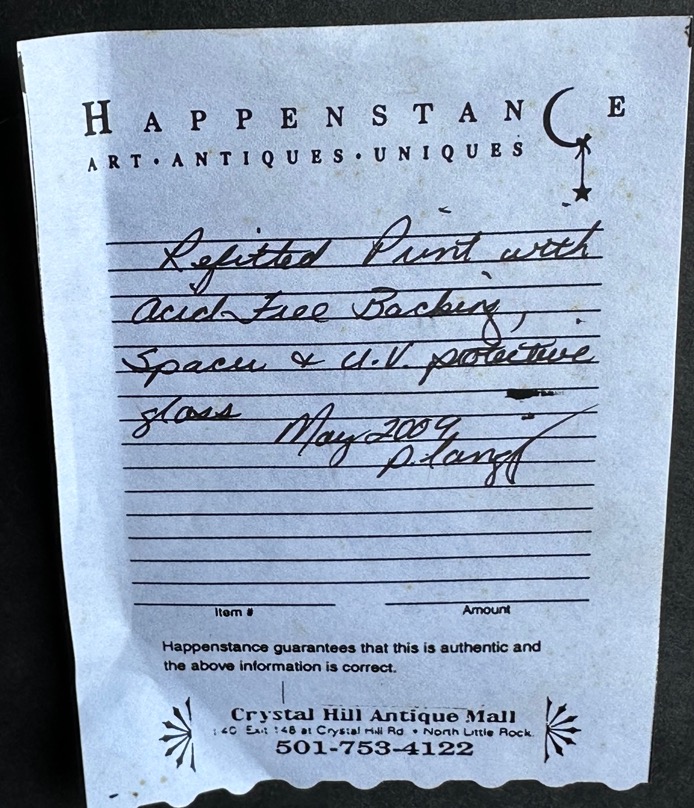 HAPPENSTANCE
ART•ANTIQUES•UNIQUES
Refitted Print with
Acid-Free Backing,
Spacer & U.V. protective
glass
May 2009
Item #
Amount
Happenstance guarantees that this is authentic and
the above information is correct.
Crystal Hill Antique Mall
Exit 148 at Crystal Hill Rd. • North Little Rock
501-753-4122